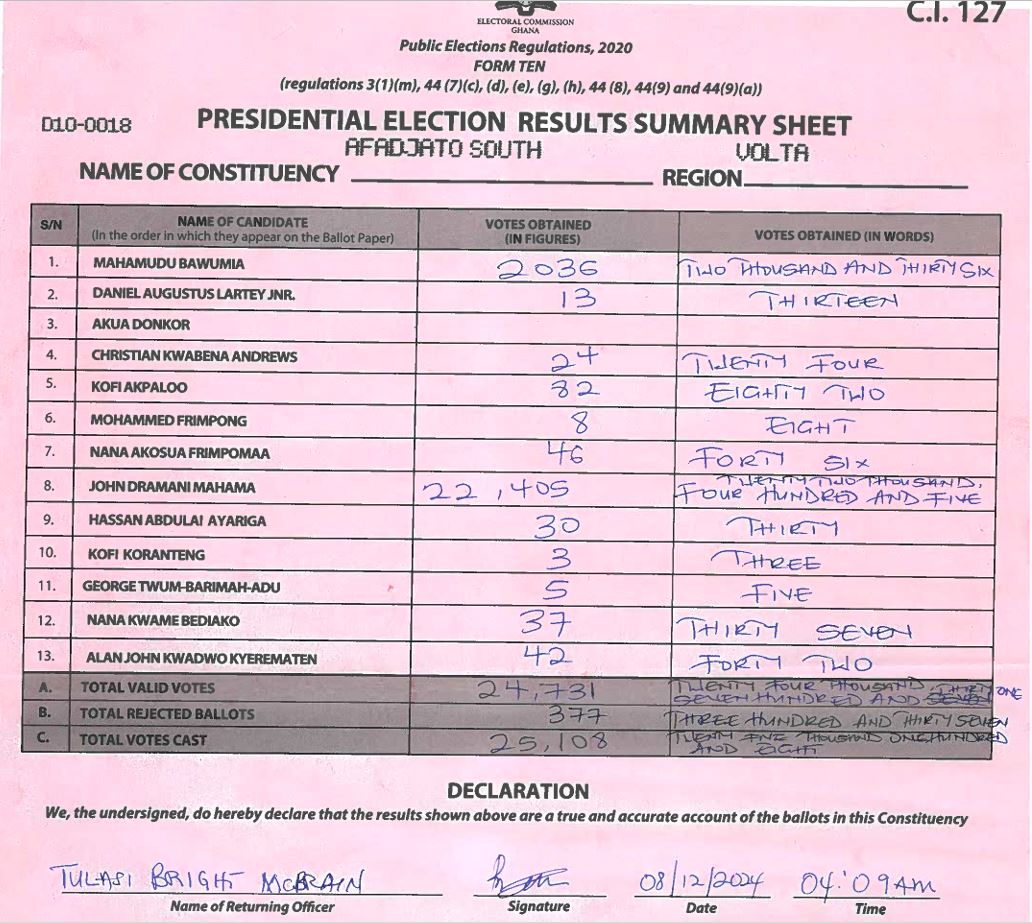 C.I. 127
ELECTORAL COMMISSION
GHANA
Public Elections Regulations, 2020
FORM TEN
(regulations 3(1)(m), 44 (7)(c), (d), (e), (g), (h), 44 (8), 44(9) and 44(9)(a))
D10-0018
PRESIDENTIAL ELECTION RESULTS SUMMARY SHEET
AFADJATO SOUTH VOLTA
NAME OF CONSTITUENCY REGION
S/N NAME OF CANDIDATE (In the order in which they appear on the Ballot Paper) VOTES OBTAINED (IN FIGURES) VOTES OBTAINED (IN WORDS)
1. MAHAMUDU BAWUMIA 2036 TWO THOUSAND AND THIRTY SIX
2. DANIEL AUGUSTUS LARTEY JNR. 13 THIRTEEN
3. AKUA DONKOR
4. CHRISTIAN KWABENA ANDREWS 24 TWENTY FOUR
5. KOFI AKPALOO 82 EIGHTY TWO
6. MOHAMMED FRIMPONG 8 EIGHT
7. NANA AKOSUA FRIMPOMAA 46 FORTY SIX
8. JOHN DRAMANI MAHAMA 22,405 TWENTY TWO THOUSAND, FOUR HUNDRED AND FIVE
9. HASSAN ABDULAI AYARIGA 30 THIRTY
10. KOFI KORANTENG 3 THREE
11. GEORGE TWUM-BARIMAH-ADU 5 FIVE
12. NANA KWAME BEDIAKO 37 THIRTY SEVEN
13. ALAN JOHN KWADWO KYEREMATEN 42 FORTY TWO
A. TOTAL VALID VOTES 24,731 TWENTY FOUR THOUSAND, SEVEN HUNDRED AND THIRTY ONE
B. TOTAL REJECTED BALLOTS 377 THREE HUNDRED AND THIRTY SEVEN
C. TOTAL VOTES CAST 25,108 TWENTY FIVE THOUSAND ONE HUNDRED AND EIGHT
DECLARATION
We, the undersigned, do hereby declare that the results shown above are a true and accurate account of the ballots in this Constituency
TULASI BRIGHT McBRAIN 08/12/2024 04:09AM
Name of Returning Officer Signature Date Time